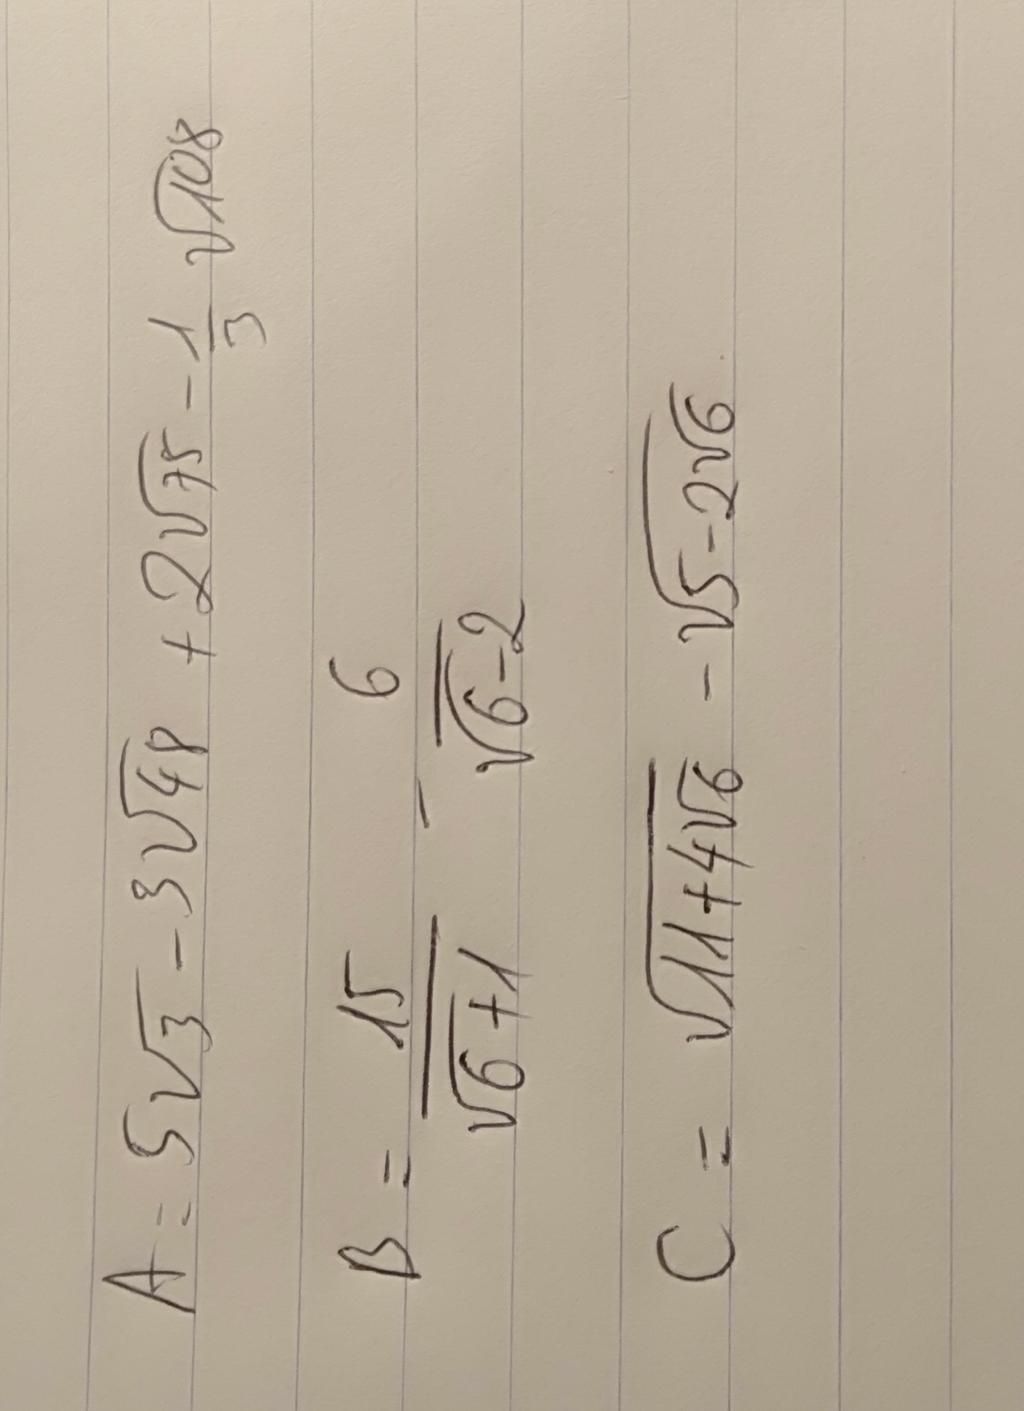 A = 5√3 - 3√48 + 2√75 - 1/3 √108
B = 15/(√6+1) - 6/(√6-2)
C = √(11+4√6) - √(5-2√6)